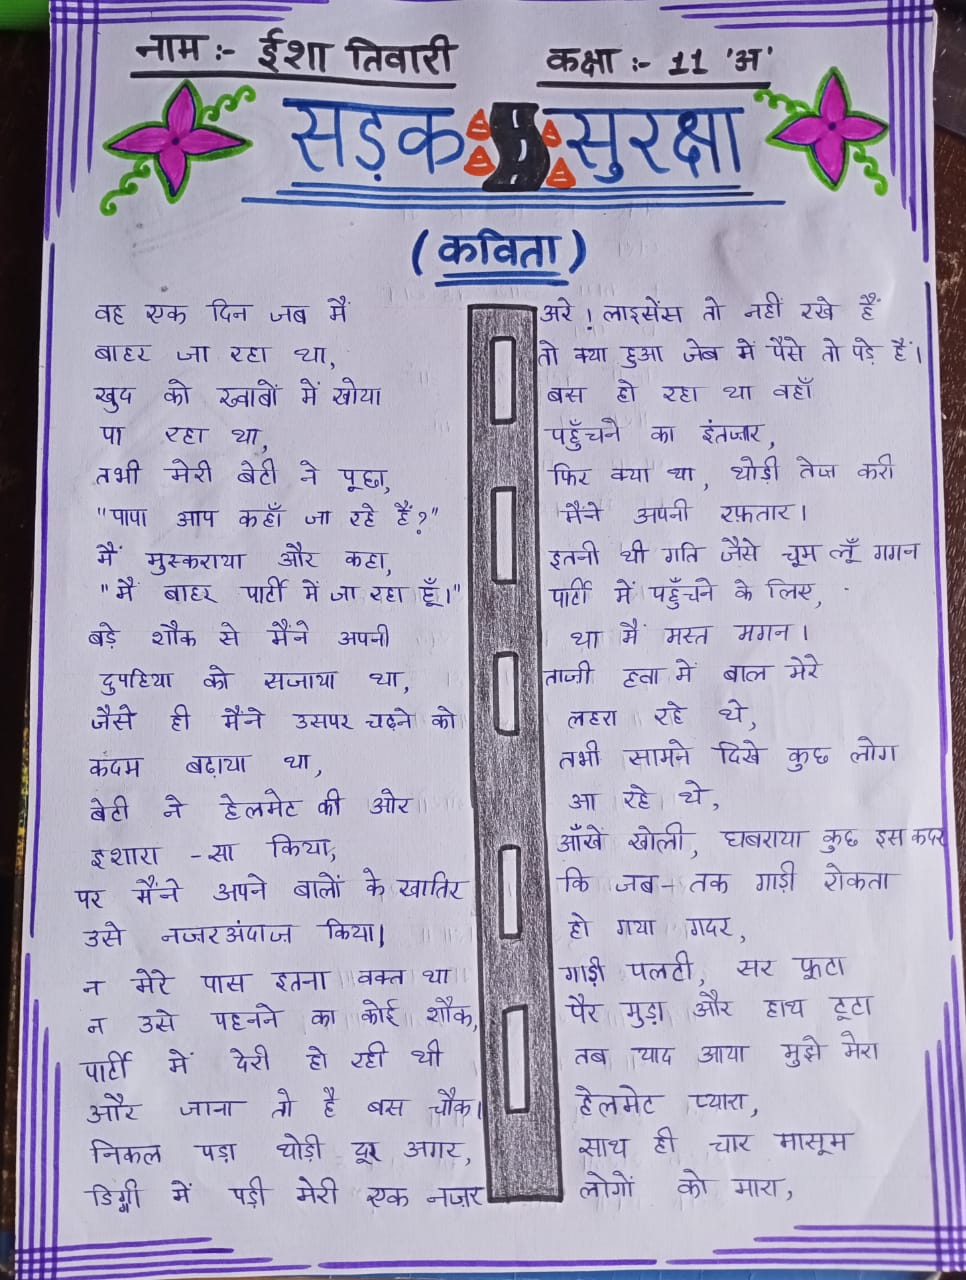 नाम :- ईशा तिवारी
कक्षा :- 11 'अ'
सड़क सुरक्षा
(कविता)
वह एक दिन जब मैं
बाहर जा रहा था,
खुद को ख्वाबों में खोया
पा रहा था,
तभी मेरी बेटी ने पूछा,
"पापा आप कहाँ जा रहे हैं?"
मैं मुस्कराया और कहा,
"मैं बाहर पार्टी में जा रहा हूँ।"
बड़े शौक से मैंने अपनी
दुपहिया को सजाया था,
जैसे ही मैंने उसपर चढ़ने को
कदम बढ़ाया था,
बेटी ने हेलमेट की ओर
इशारा -सा किया,
पर मैंने अपने बालों के खातिर
उसे नज़रअंदाज़ किया।
न मेरे पास इतना वक्त था
न उसे पहनने का कोई शौक,
पार्टी में देरी हो रही थी
और जाना तो है बस चौक।
निकल पड़ा थोड़ी दूर अगर,
डिग्गी में पड़ी मेरी एक नज़र
अरे! लाइसेंस तो नहीं रखे हैं
तो क्या हुआ जेब में पैसे तो पड़े हैं।
बस हो रहा था वहाँ
पहुँचने का इंतजार,
फिर क्या था, थोड़ी तेज करी
मैंने अपनी रफ़तार।
इतनी थी गति जैसे चूम लूँ गगन
पार्टी में पहुँचने के लिए,
था मैं मस्त मगन।
ताज़ी हवा में बाल मेरे
लहरा रहे थे,
तभी सामने दिखे कुछ लोग
आ रहे थे,
आँखें खोली, घबराया कुछ इस कदर
कि जब-तक गाड़ी रोकता
हो गया गदर,
गाड़ी पलटी, सर फूटा
पैर मुड़ा और हाथ टूटा
तब याद आया मुझे मेरा
हेलमेट प्यारा,
साथ ही चार मासूम
लोगों को मारा,